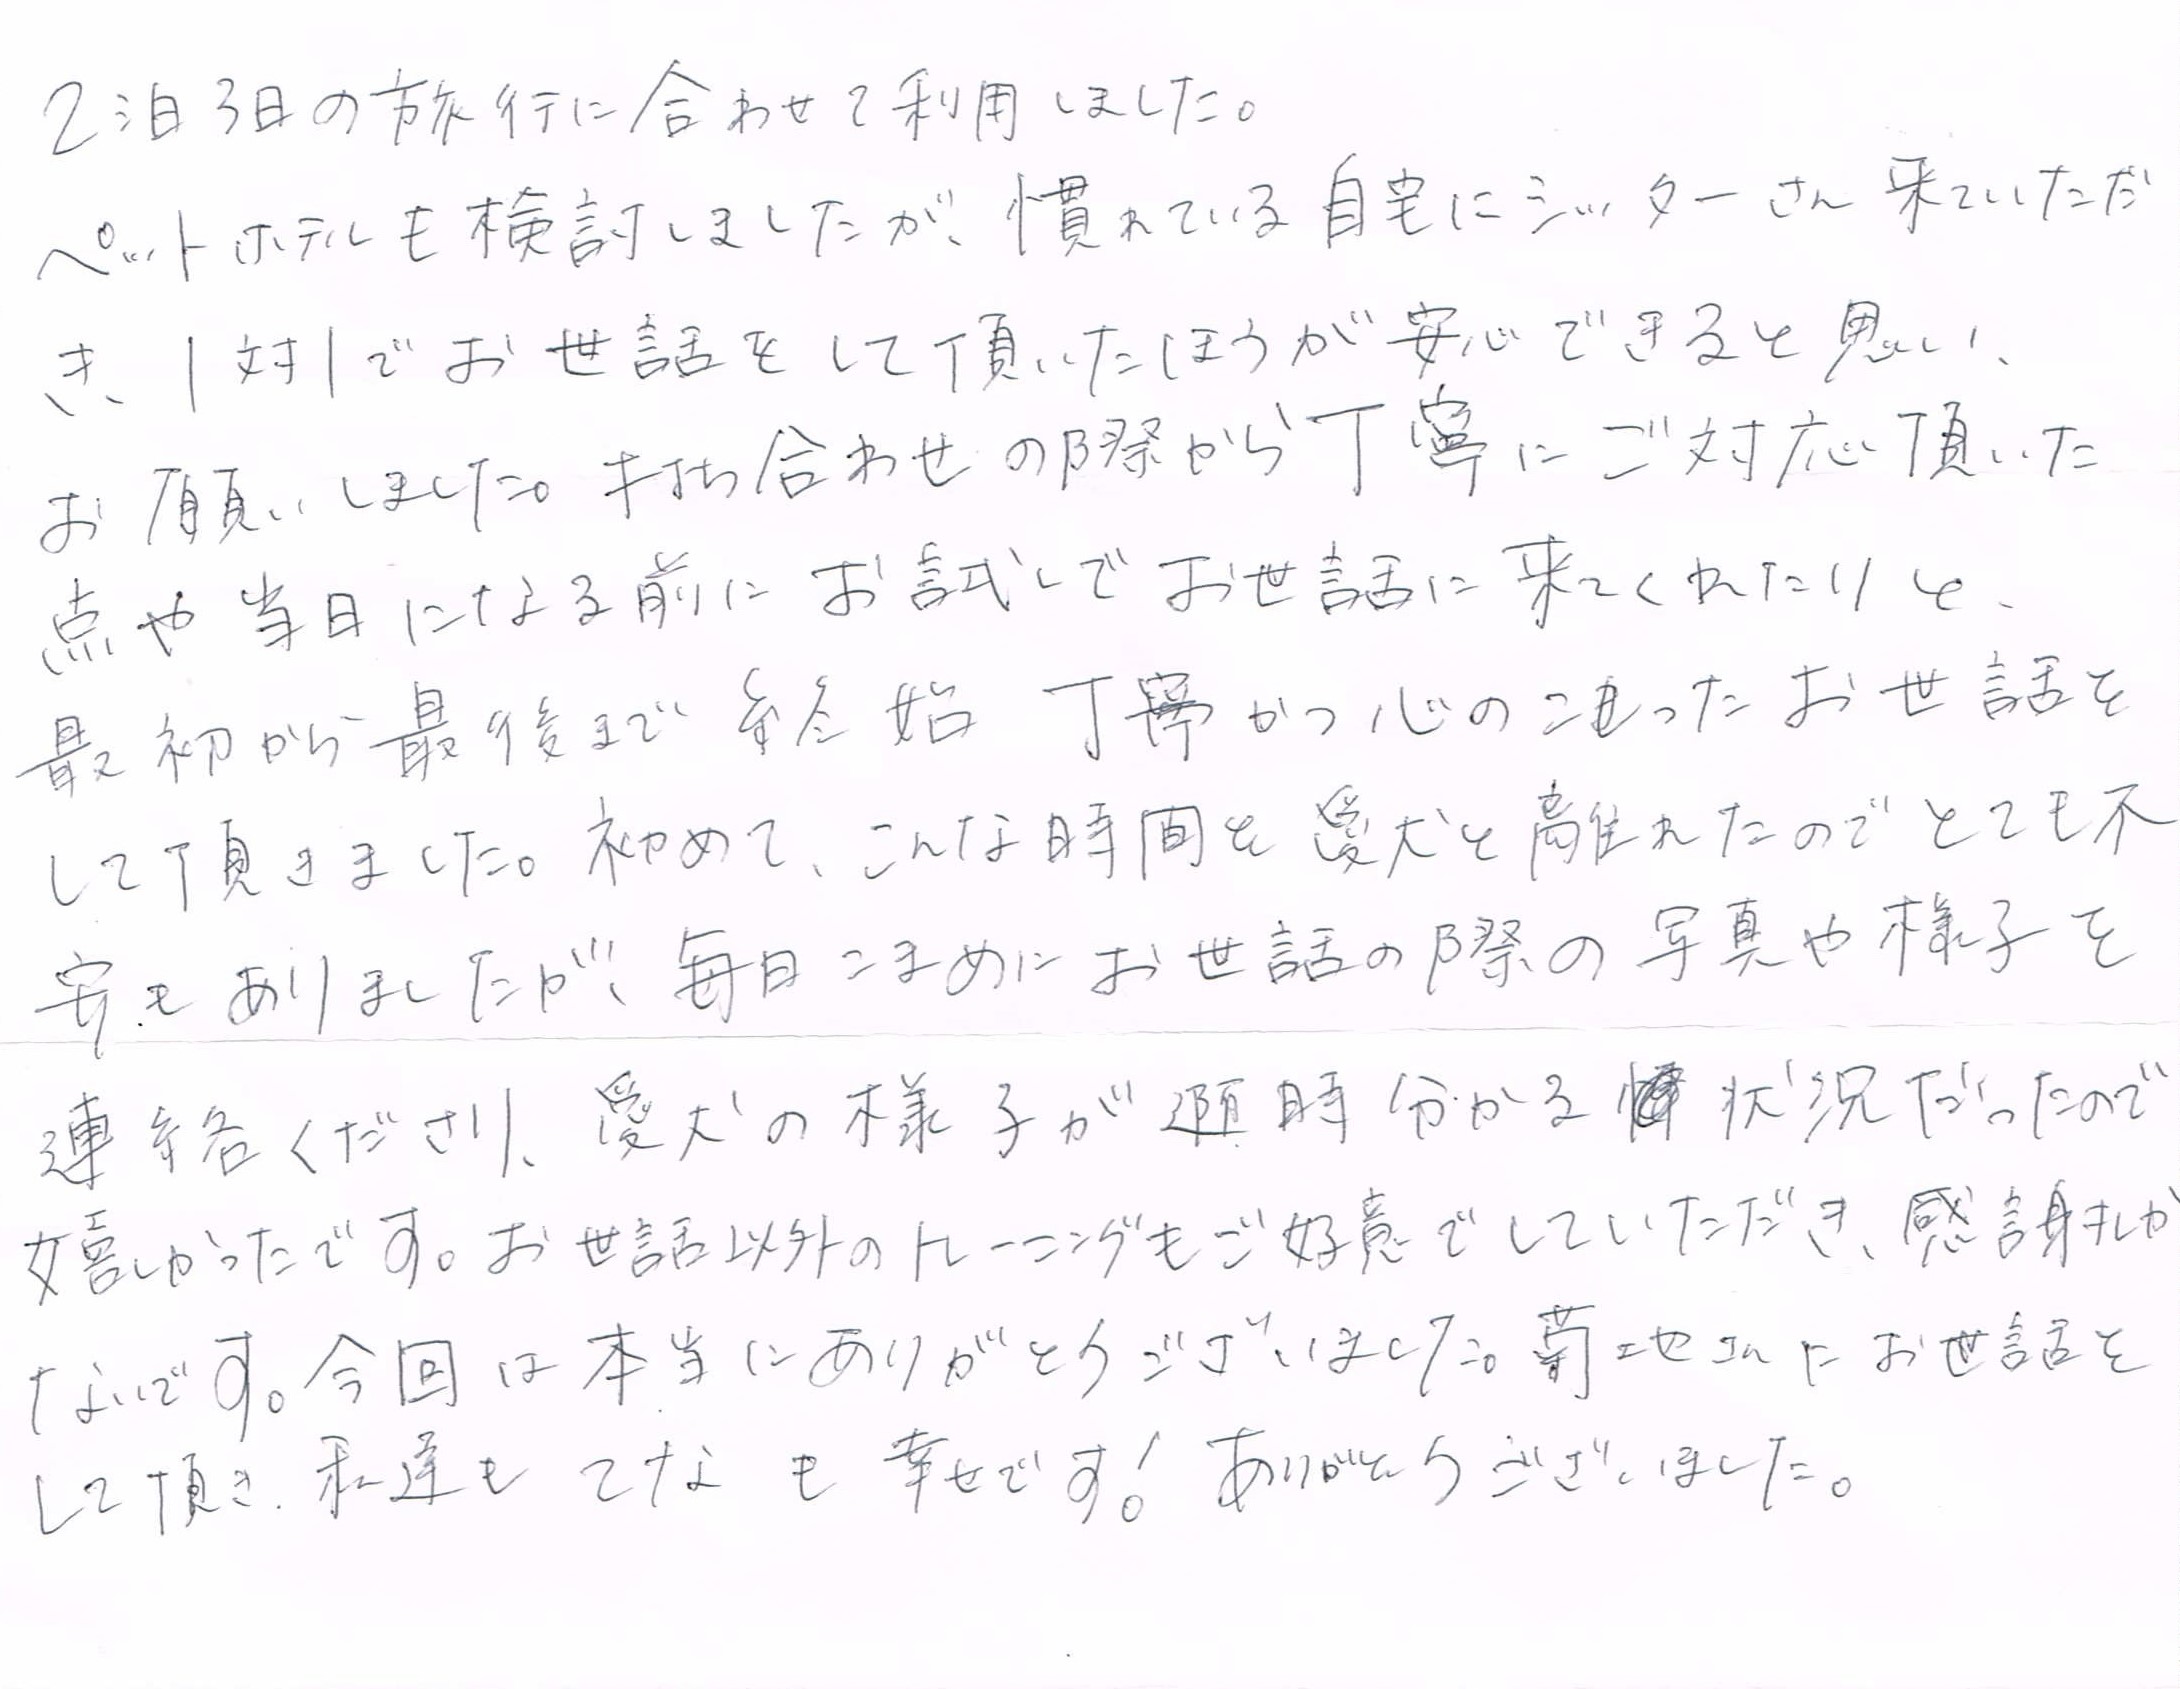 2泊3日の旅行に合わせて利用しました。
ペットホテルも検討しましたが、慣れている自宅にシッターさん来ていただ
き、1対1でお世話をして頂いたほうが安心できると思い、
お願いしました。打ち合わせの際から丁寧にご対応頂いた
点や当日になる前にお試しでお世話に来てくれたりと、
最初から最後まで終始 丁寧かつ心のこもったお世話を
して頂きました。初めて、こんな時間を愛犬と離れたのでとても不
安もありましたが、毎日こまめにお世話の際の写真や様子を
連絡くださり、愛犬の様子が随時分かる状況だったので
嬉しかったです。お世話以外のトレーニングもご好意でしていただき、感謝しか
ないです。今回は本当にありがとうございました。菊地さんにお世話を
して頂き、私達もてなも幸せです!ありがとうございました。